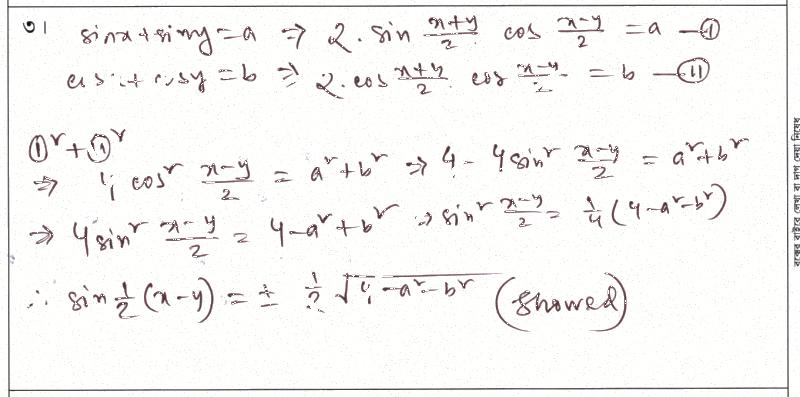 ৩। sinx+siny=a ⇒ 2. sin (x+y)/2 cos (x-y)/2 = a —(i)
cosx+cosy=b ⇒ 2.cos (x+y)/2 cos (x-y)/2 = b —(ii)
(i)² + (ii)²
⇒ 4 cos² (x-y)/2 = a²+b² ⇒ 4 - 4sin² (x-y)/2 = a²+b²
⇒ 4sin² (x-y)/2 = 4-a²+b² ⇒ sin² (x-y)/2 = 1/4 (4-a²-b²)
∴ sin 1/2 (x-y) = ± 1/2 √(4-a²-b²) (Showed)
বক্সের বাইরে লেখা বা দাগ দেয়া নিষেধ